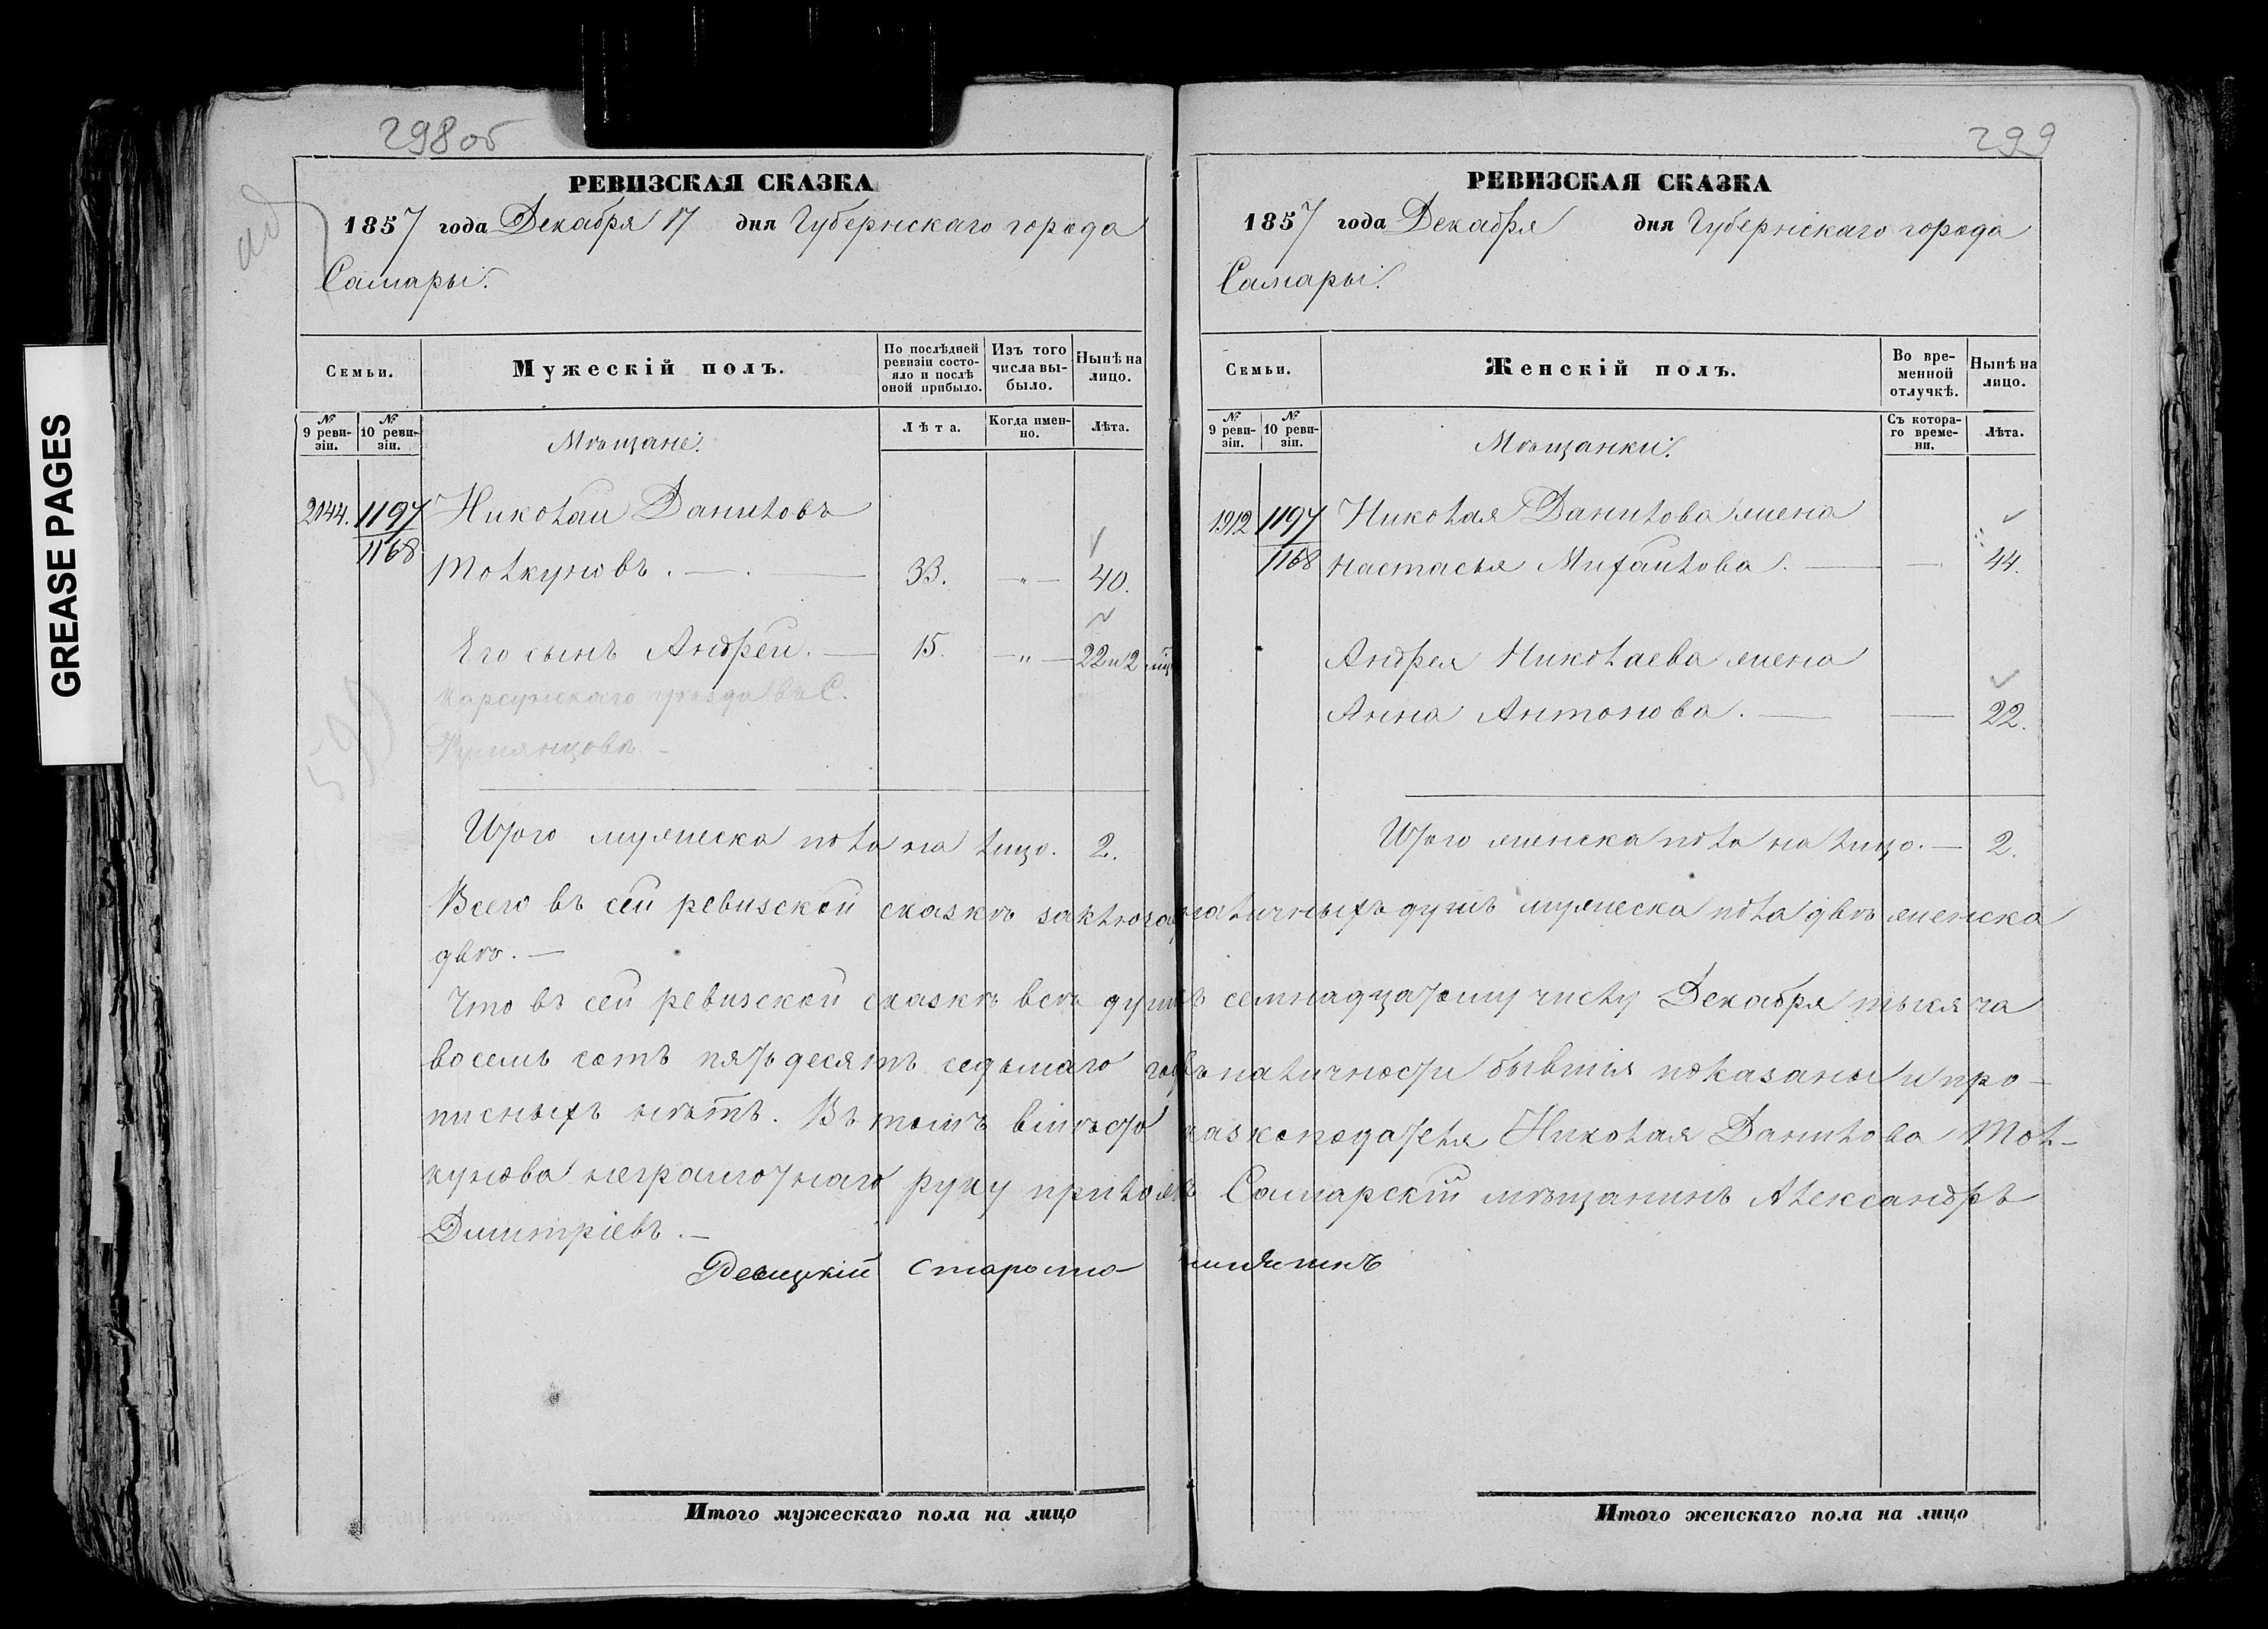 GREASE PAGES
298 об
РЕВИЗСКАЯ СКАЗКА
1857 года Декабря 17 дня Губернскаго города
Самары.
Семьи.
Мужескій полъ.
По послѣдней ревизіи состояло и послѣ оной прибыло.
Изъ того числа выбыло.
Нынѣ на лицо.
№ 9 ревизіи.
№ 10 ревизіи.
Мѣщане.
Лѣта.
Когда именно.
Лѣта.
2144. 1197 Николай Даниловъ
1168 Толкуновъ. — 33. " 40.
Его сынъ Андрей. — 15. — " — 22 и 2 мѣ
Карсунскаго уѣзда въ С.
Румянцовѣ. —
599
Итого мужеска пола на лицо. 2.
299
РЕВИЗСКАЯ СКАЗКА
1857 года Декабря дня Губернскаго города
Самары.
Семьи.
Женскій полъ.
Во временной отлучкѣ.
Нынѣ на лицо.
№ 9 ревизіи.
№ 10 ревизіи.
Мѣщанки.
Съ котораго времени.
Лѣта.
1912 1197 Николая Данилова жена
1168 Настасья Михайлова. — — 44.
Андрея Николаева жена
Анна Антонова. — — 22.
Итого женска пола на лицо. — 2.
Всего въ сей ревизской сказкѣ заключа наличныхъ душъ мужеска пола двѣ женска
двѣ. —
Что въ сей ревизской сказкѣ всѣ души къ семнадцатому числу Декабря тысяча
восемь сотъ пятьдесятъ седьмаго год въ наличности бывшія показаны и про-
писныхъ нѣтъ. Въ томъ вмѣсто сказкоподателя Николая Данилова Тол-
кунова неграмотнаго руку приложилъ Самарскій мѣщанинъ Александръ
Димитріевъ. —
староста
Итого мужескаго пола на лицо
Итого женскаго пола на лицо